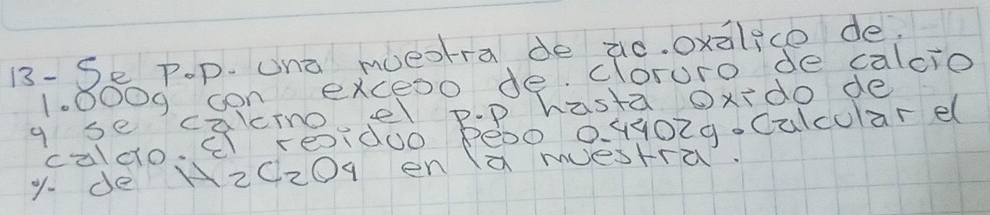 13- Se p.p. una muestra de ac. oxálico de
1.000g con exceso de cloruro de calcio
y se calcino el p.p hasta oxido de
calcio. El residuo peso 0.4402g. Calcular el
% de H2C2O4 en la muestra.